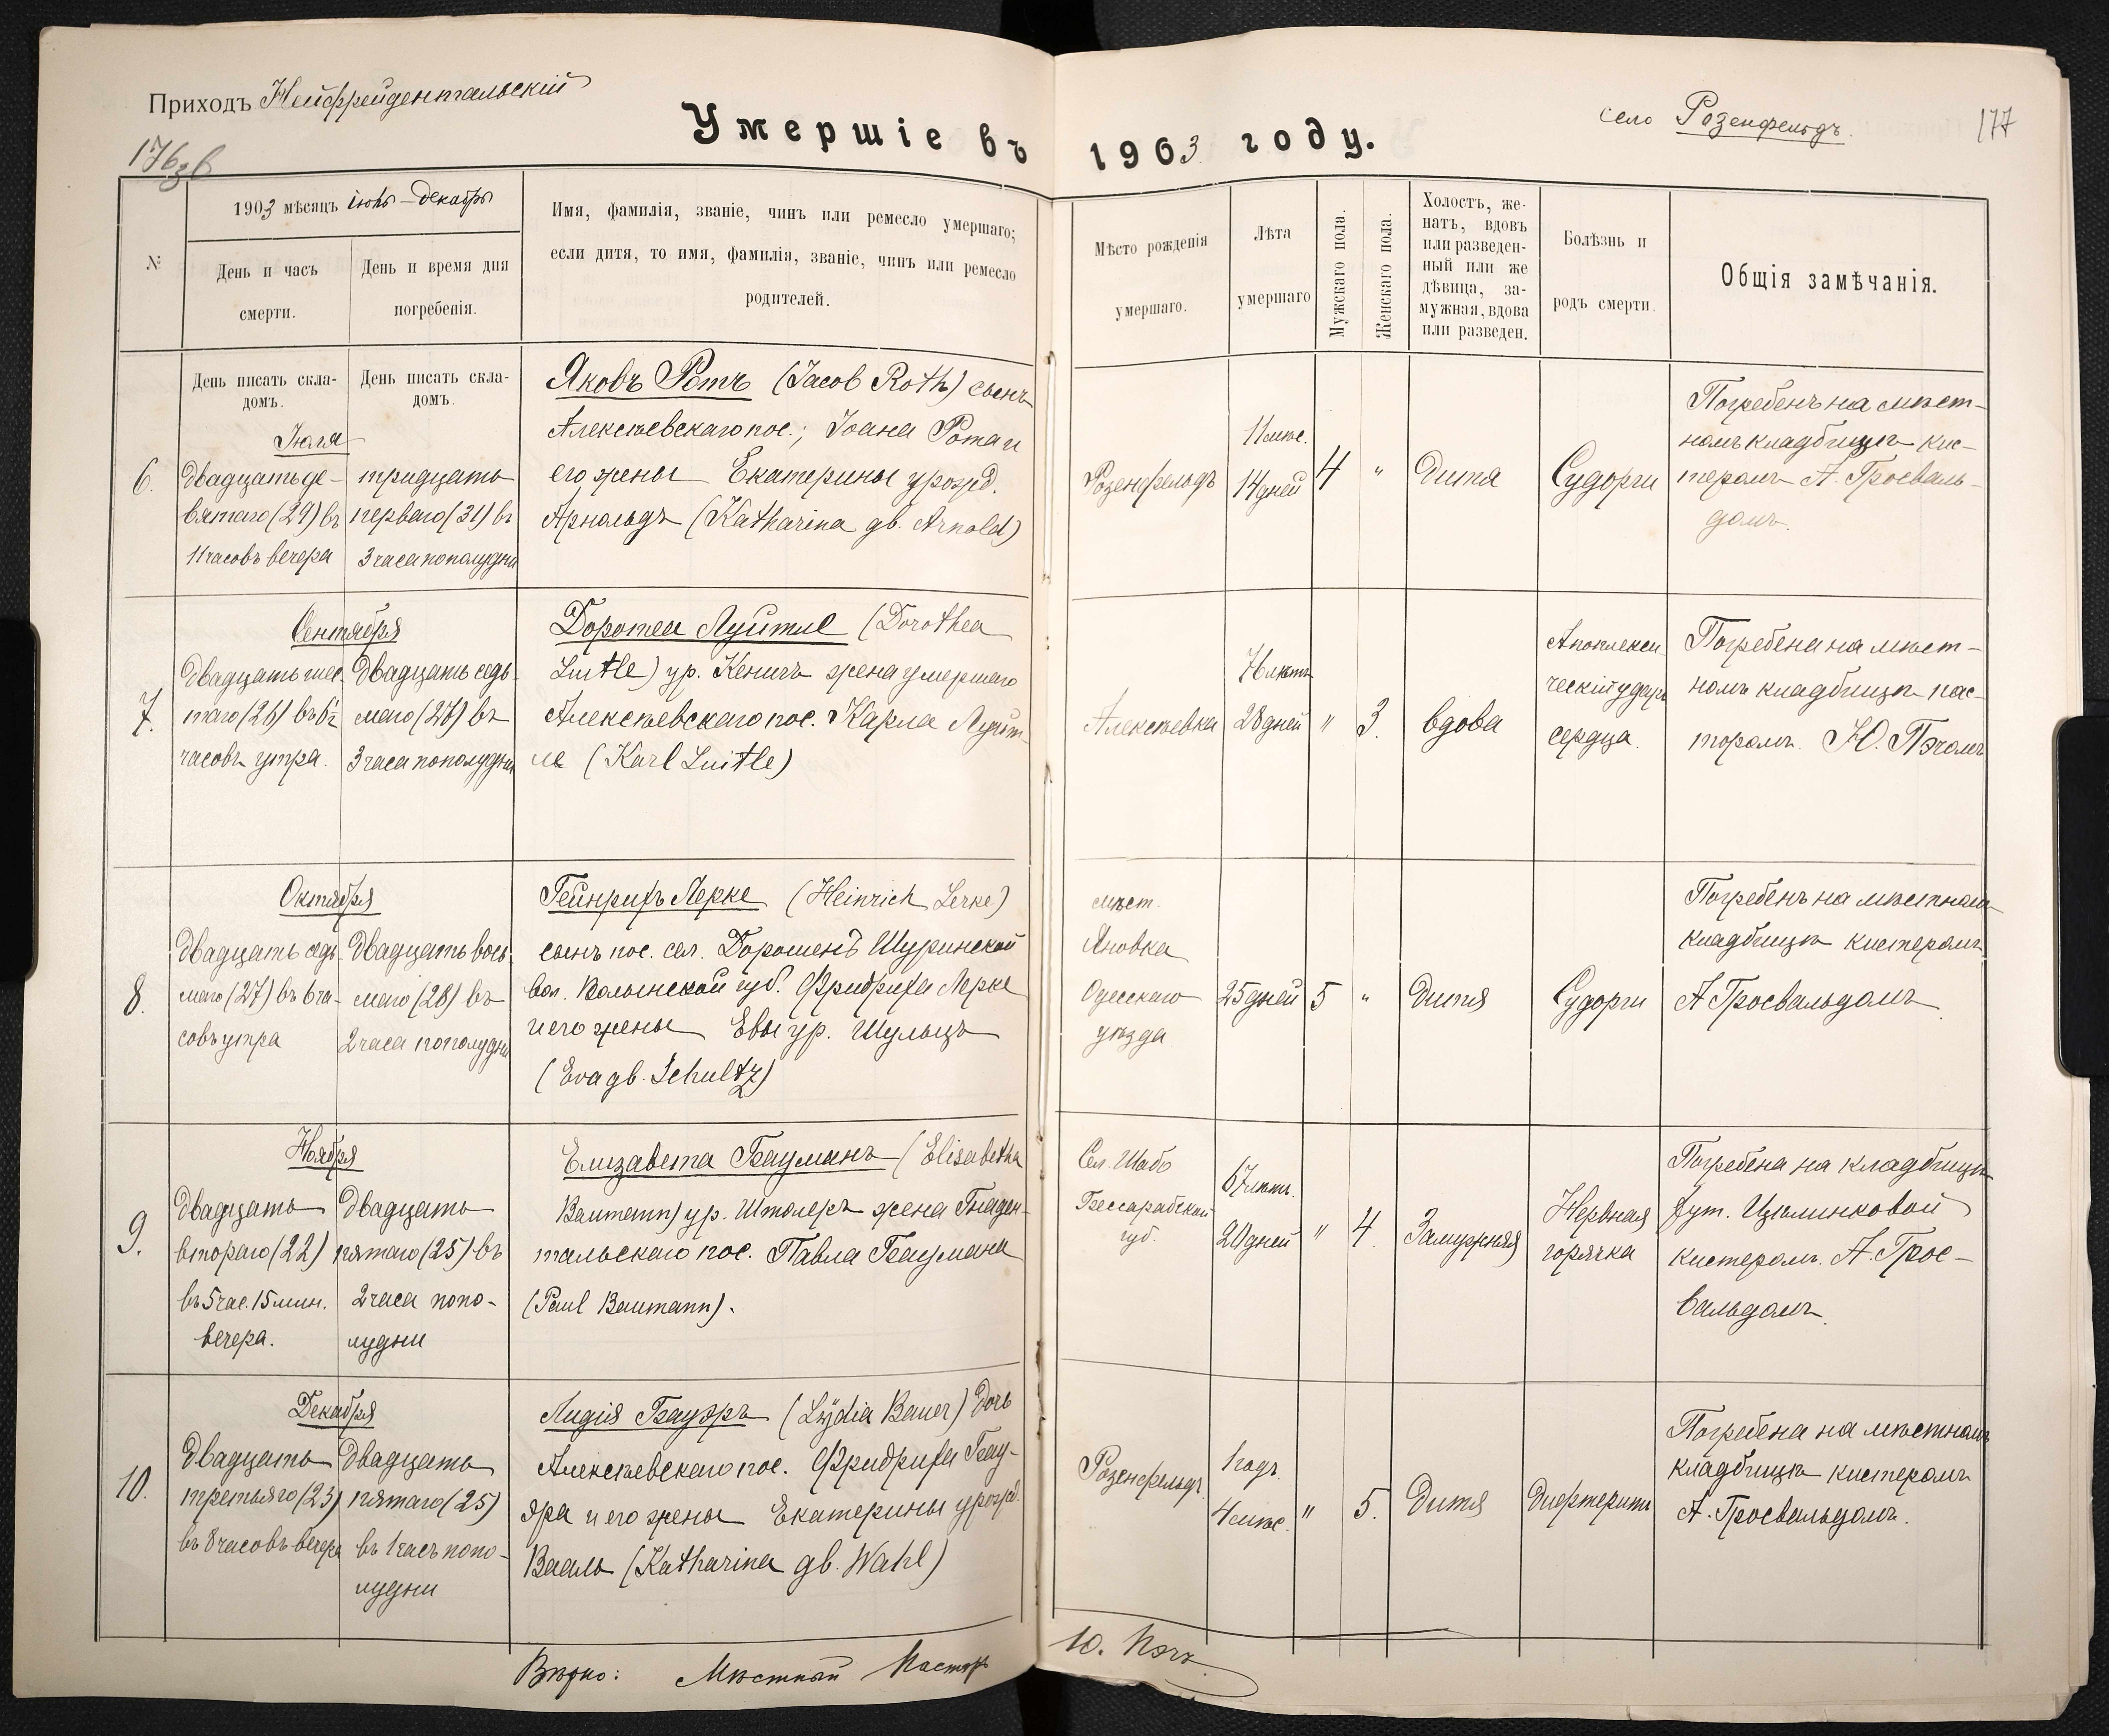 Приходъ Нейфрейдентальскій
Умершіе въ
1903 году.
село Розенфельдъ.
177
176зв
№
1903 мѣсяцъ іюль - декабрь
День и часъ
смерти.
День и время дня
погребенія.
Имя, фамилія, званіе, чинъ или ремесло умершаго;
если дитя, то имя, фамилія, званіе, чинъ или ремесло
родителей.
Мѣсто рожденія
умершаго.
Лѣта
умершаго
Мужскаго пола.
Женскаго пола.
Холостъ, же-
натъ, вдовъ
или разведен-
ный или же
дѣвица, за-
мужная, вдова
или разведен.
Болѣзнь и
родъ смерти.
Общія замѣчанія.
День писать скла-
домъ.
День писать скла-
домъ.
6.
Іюля
двадцать де-
вятаго (29) въ
11 часовъ вечера
тридцать
перваго (31) въ
3 часа пополудни
Яковъ Ротъ (Jacob Roth) сынъ
Алексѣевскаго пос.; Іоана Рота и
его жены Екатерины урожд.
Арнольдъ (Katharina gb. Arnold)
Розенфельдъ
11 мѣс.
14 дней
4
"
дитя
Судорги
Погребенъ на мѣст-
номъ кладбищѣ кис-
теромъ А. Гросваль-
домъ.
7.
Сентября
двадцать шес-
таго (26) въ 6½
часовъ утра.
двадцать седь-
маго (27) въ
3 часа пополудни
Доротеа Луитле (Dorothea
Luitle) ур. Кенигъ жена умершаго
Алексѣевскаго пос. Карла Луит-
ле (Karl Luitle)
Алексѣевка
76 лѣтъ
28 дней
"
3.
вдова
Апоплекси-
ческій ударъ
сердца.
Погребена на мѣст-
номъ кладбищѣ пас-
торомъ Ю. Пэчомъ
8.
Октября
двадцать седь-
маго (27) въ 6 ча-
совъ утра
двадцать вось-
маго (28) въ
2 часа пополудни
Гейнрихъ Лерке (Heinrich Lerke)
сынъ пос. сел. Дорошенъ Щуринской
вол. Волынской губ. Фридриха Лерке
и его жены Евы ур. Шульцъ
(Eva gb. Schultz)
мѣст.
Яновка
Одесскаго
уѣзда
25 дней
5
"
дитя
Судорги
Погребенъ на мѣстномъ
кладбищѣ кистеромъ
А Гросвальдомъ.
9.
Ноября
двадцать
второго (22)
въ 5 час. 15 мин.
вечера.
двадцать
пятаго (25) въ
2 часа попо-
лудни
Елизавета Бауманъ (Elisabetha
Baumann) ур. Штолеръ жена Гнаден-
тальскаго пос. Павла Баумана
(Paul Baumann).
Сел. Шабо
Бессарабской
губ.
67 лѣтъ.
20 дней
"
4.
Замужняя
Нервная
горячка
Погребена на кладбищѣ
хут. Цѣлинковой
кистеромъ А. Грос-
вальдомъ.
10.
Декабря
двадцать
третьяго (23)
въ 8 часовъ вечера
двадцать
пятаго (25)
въ 1 часъ попо-
лудни
Лидія Бауэръ (Lydia Bauer) дочь
Алексѣевскаго пос. Фридриха Бау-
эра и его жены Екатерины урожд.
Вааль (Katharina gb. Wahl)
Розенфельдъ
1 годъ.
4 мѣс.
"
5.
дитя
Дифтеритъ
Погребена на мѣстномъ
кладбищѣ кистеромъ
А. Гросвальдомъ.
Вѣрно: Мѣстный Пасторъ
Ю. Пэчъ.